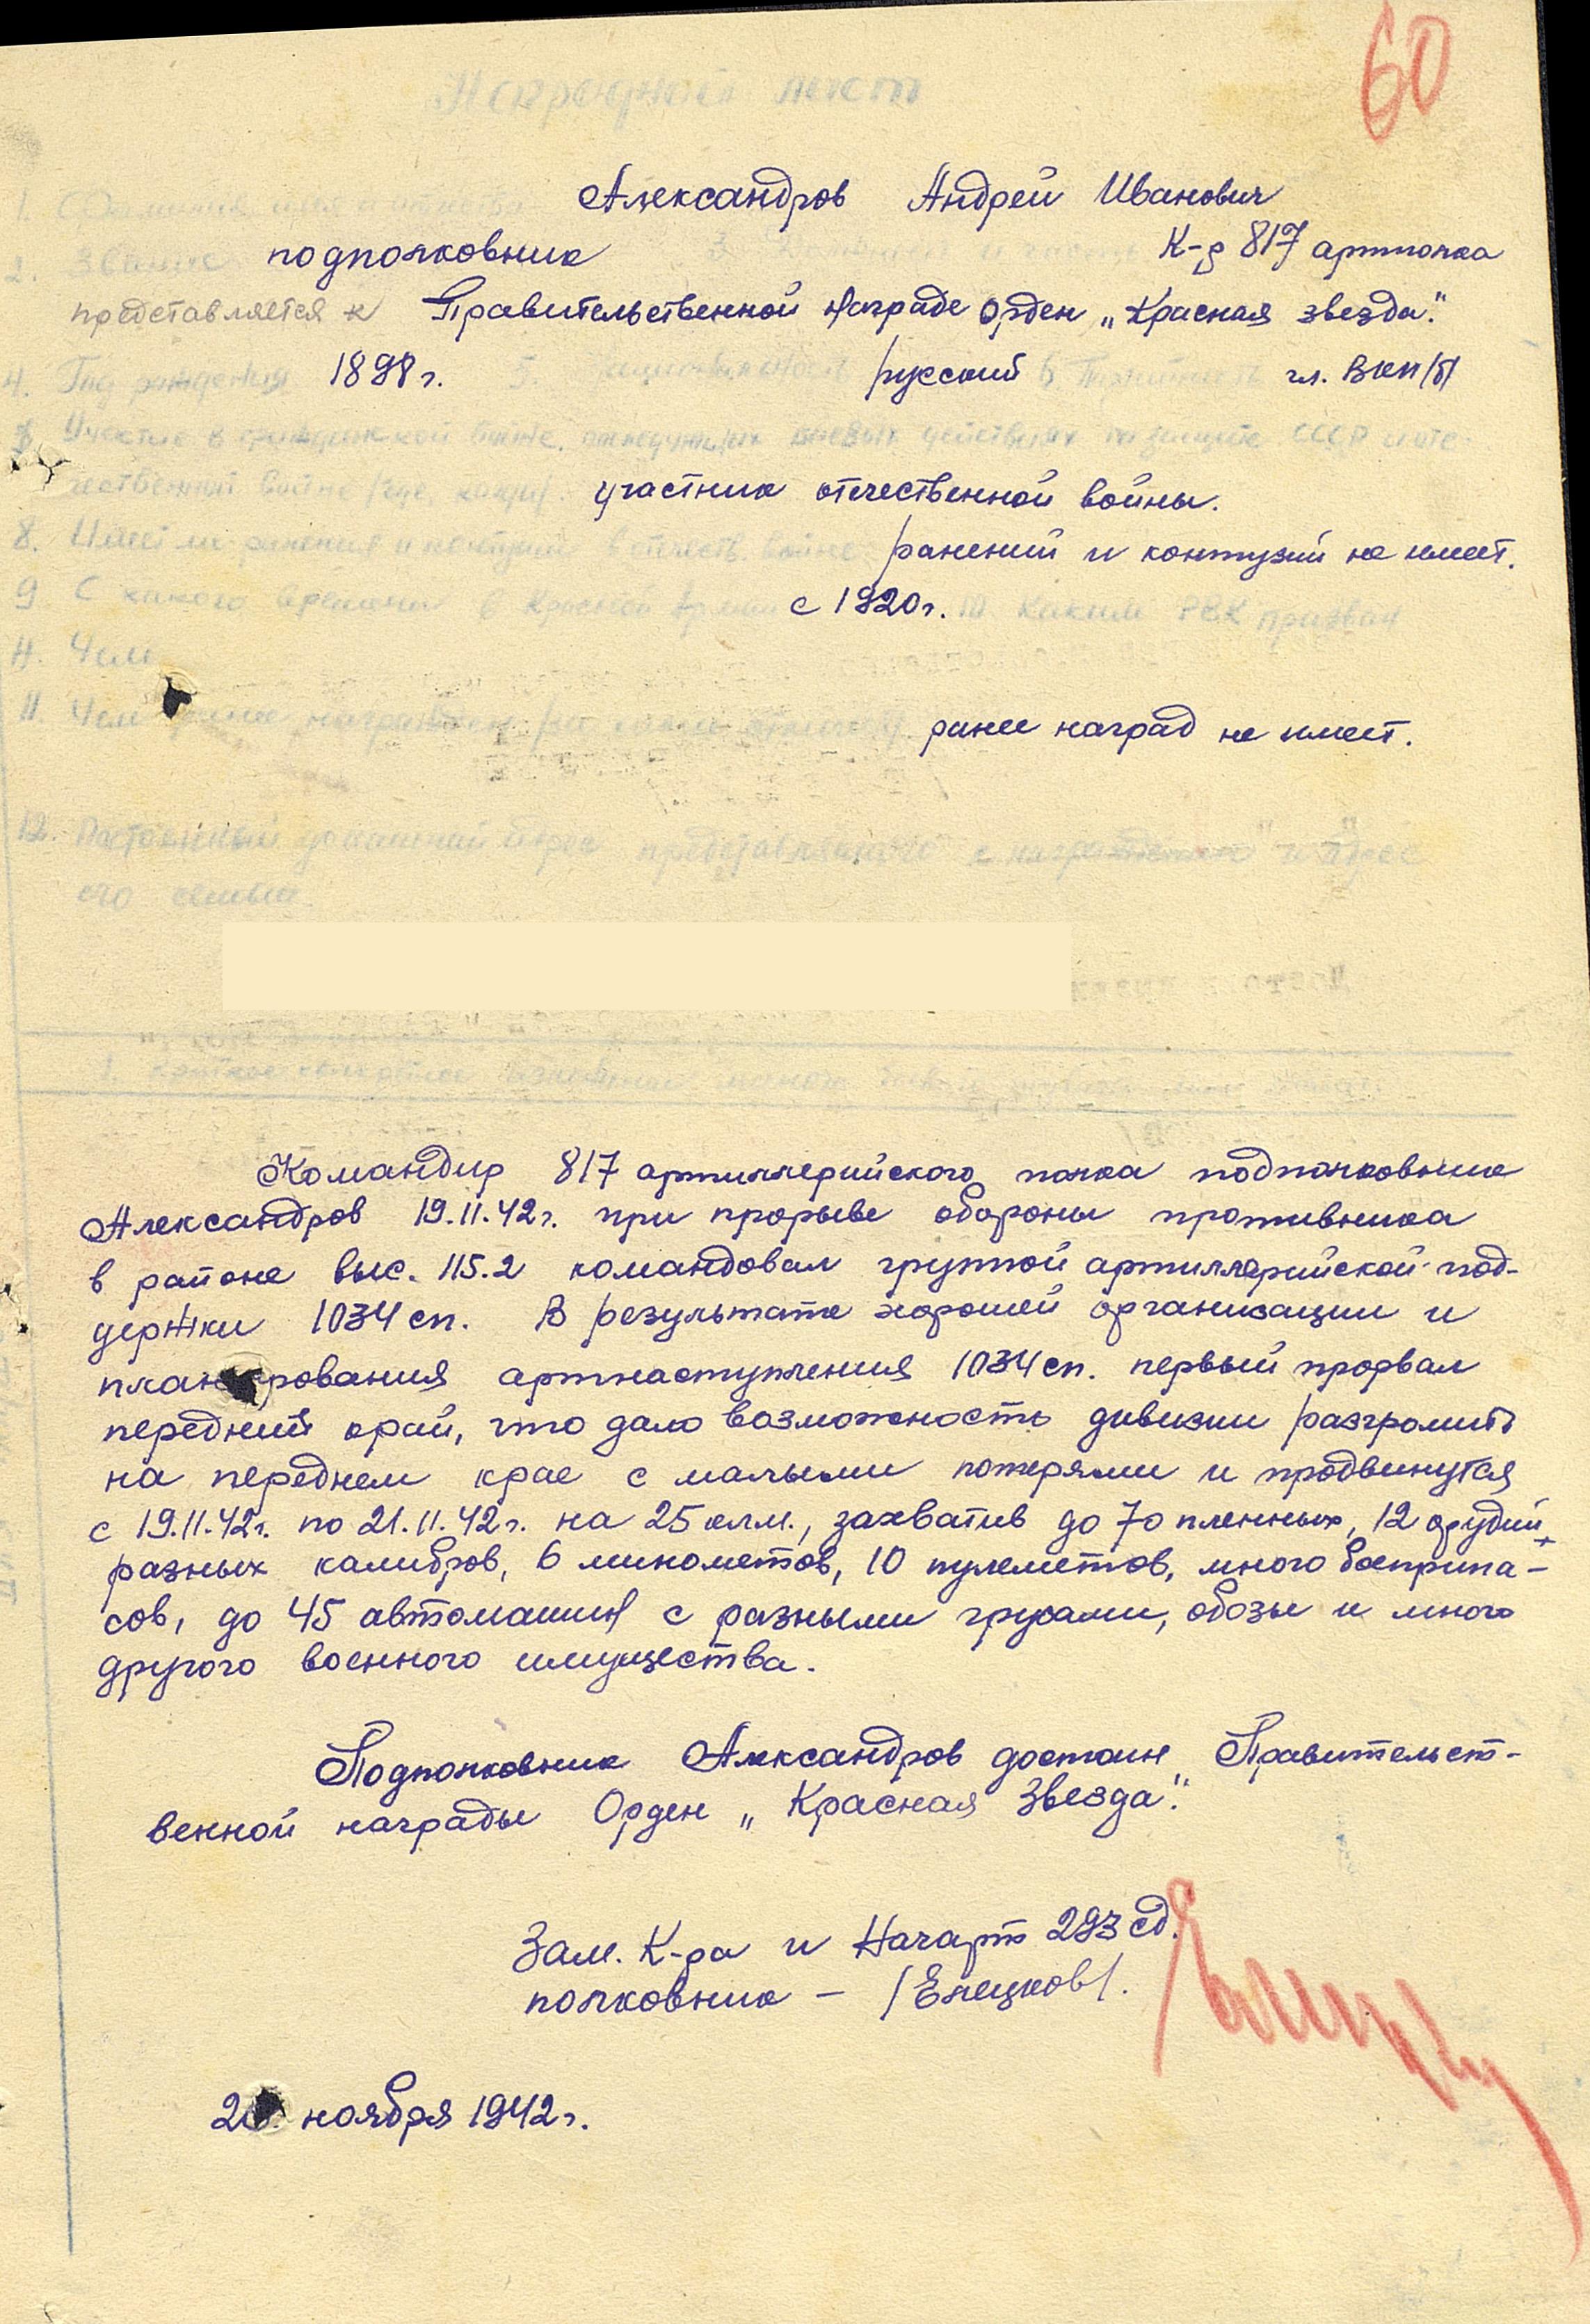 60
Наградной лист
1. Фамилия, имя и отчество Александров Андрей Иванович
2. Звание подполковник 3. К-р 817 артполка
представляется к Правительственной награде орден „Красная звезда".
4. Год рождения 1898 г. 5. Национальность русский 6 Партийность чл. ВКП/б/
7. Участие в гражданской войне, последующих боевых действиях по защите СССР и оте-
чественной войне /где, когда/. участник отечественной войны.
8. Имеет ли ранения и контузии в отечеств. войне ранений и контузий не имеет.
9 С какого времени в Красной Армии с 1920 г. 10 Каким РВК призван
11. Чем
11. Чем ранее награжден /за какие отличия/ ранее наград не имеет.
12. Постоянный домашний адрес представляемого к награждению и адрес
его семьи.
1. Краткое конкретное изложение личного
Командир 817 артиллерийского полка подполковник
Александров 19.11.42г. при прорыве обороны противника
в районе выс. 115.2 командовал группой артиллерийской под-
держки 1034 сп. В результате хорошей организации и
планирования артнаступления 1034 сп. первый прорвал
передний край, что дало возможность дивизии разгромить
на переднем крае с малыми потерями и продвинутся
с 19.11.42г. по 21.11.42г. на 25 клм., захватив до 70 пленных, 12 орудий
разных калибров, 6 минометов, 10 пулеметов, много боеприпа-
сов, до 45 автомашин с разными грузами, обозы и много
другого военного имущества.
Подполковник Александров достоин Правительст-
венной награды Орден „Красная Звезда".
Зам. К-ра и Начарт 293 сд.
полковник - /Елецков/.
ноября 1942 г.